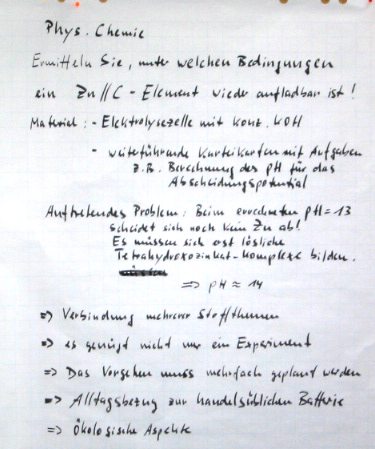 Phys. Chemie
Ermitteln Sie, unter welchen Bedingungen
ein Zn//C - Element wieder aufladbar ist!
Material: - Elektrolysezelle mit konz. KOH
- weiterführende Karteikarten mit Aufgaben
z.B. Berechnung des pH für das
Abscheidungspotential
Auftretendes Problem: Beim errechneten pH = 13
scheidet sich noch kein Zn ab!
Es müssen sich erst lösliche
Tetrahydroxozinkat-Komplexe bilden.
=> pH ≈ 14
=> Verbindung mehrerer Stoffthemen
=> es genügt nicht nur ein Experiment
=> Das Vorgehen muss mehrfach geplant werden
=> Alltagsbezug zur handelsüblichen Batterie
=> Ökologische Aspekte